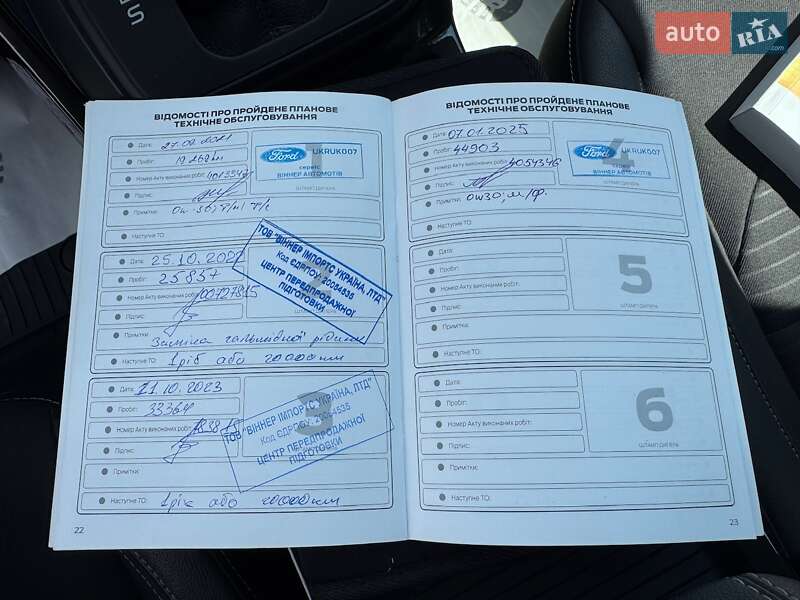 auto RIA .com
ВІДОМОСТІ ПРО ПРОЙДЕНЕ ПЛАНОВЕ
ТЕХНІЧНЕ ОБСЛУГОВУВАННЯ
Дата:
Пробіг:
Номер Акту виконаних робіт:
Підпис:
Примітки:
Наступне ТО:
Ford UKRUK007
сервіс
ВІННЕР АВТОМОТІВ
ШТАМП ДИЛЕРА
Дата: 25.10.2022
Пробіг: 25837
Номер Акту виконаних робіт:
Підпис:
Примітки: Заміна гальмівної рідини
Наступне ТО: 1 рік або 20000 км
ТОВ "ВІННЕР ІМПОРТС УКРАЇНА, ЛТД"
Код ЄДРПОУ: 20054535
ЦЕНТР ПЕРЕДПРОДАЖНОЇ
ПІДГОТОВКИ
Дата: 21.10.2023
Пробіг:
Номер Акту виконаних робіт:
Підпис:
Примітки:
Наступне ТО: 1 рік або 20000 км
3
ТОВ "ВІННЕР ІМПОРТС УКРАЇНА, ЛТД"
Код ЄДРПОУ: 20054535
ЦЕНТР ПЕРЕДПРОДАЖНОЇ
ПІДГОТОВКИ
22
ВІДОМОСТІ ПРО ПРОЙДЕНЕ ПЛАНОВЕ
ТЕХНІЧНЕ ОБСЛУГОВУВАННЯ
Дата: 07.01.2025
Пробіг: 44903
Номер Акту виконаних робіт: 4054346
Підпис:
Примітки: 0w30; м/ф.
Наступне ТО:
4
Ford UKRUK007
сервіс
ВІННЕР АВТОМОТІВ
ШТАМП ДИЛЕРА
Дата:
Пробіг:
Номер Акту виконаних робіт:
Підпис:
Примітки:
Наступне ТО:
5
ШТАМП ДИЛЕРА
Дата:
Пробіг:
Номер Акту виконаних робіт:
Підпис:
Примітки:
Наступне ТО:
6
ШТАМП ДИЛЕРА
23